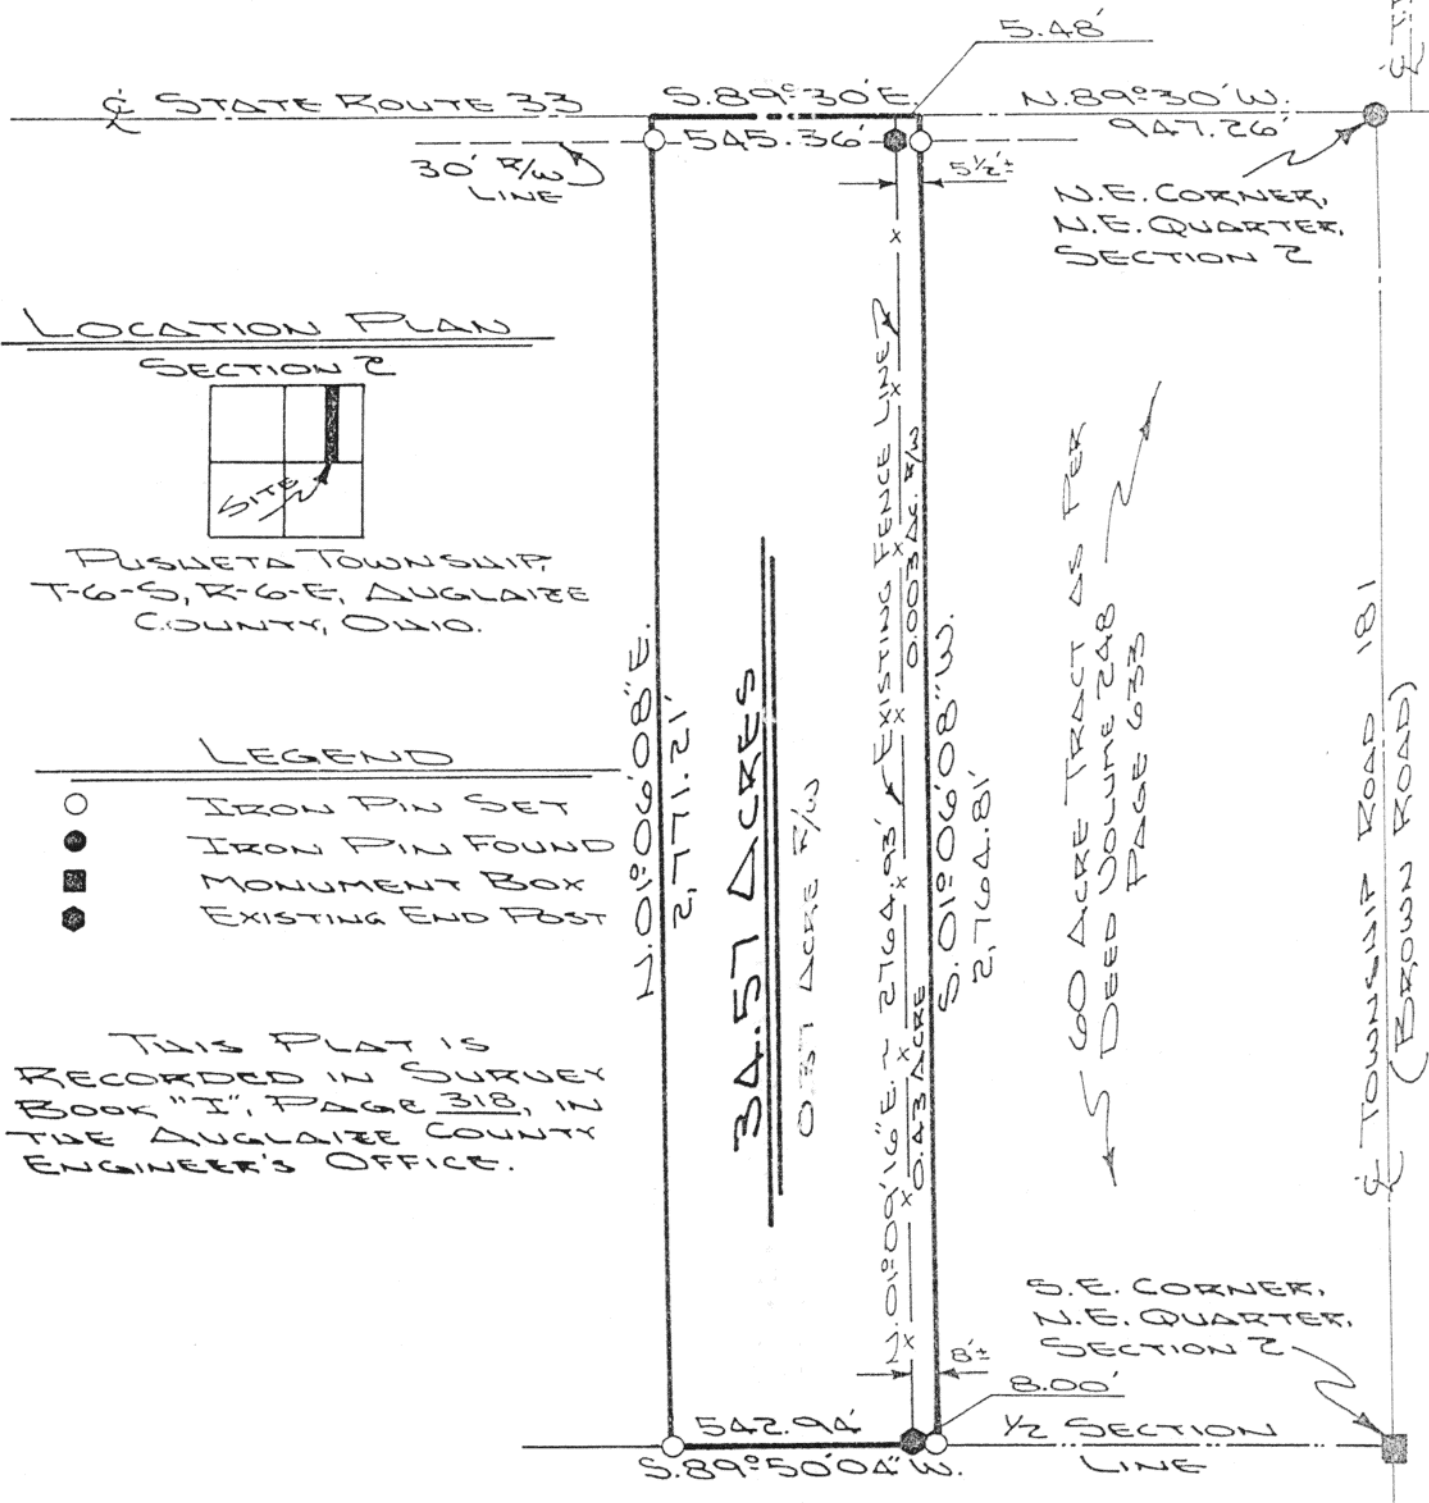 5.48'
℄ STATE ROUTE 33
S.89°30'E.
N.89°30'W.
545.36'
947.26'
30' R/W
LINE
5½'±
N.E. CORNER,
N.E. QUARTER,
SECTION 2
LOCATION PLAN
SECTION 2
SITE
PUSHETA TOWNSHIP,
T-6-S, R-6-E, AUGLAIZE
COUNTY, OHIO.
LEGEND
IRON PIN SET
IRON PIN FOUND
MONUMENT BOX
EXISTING END POST
THIS PLAT IS
RECORDED IN SURVEY
BOOK "I", PAGE 318, IN
THE AUGLAIZE COUNTY
ENGINEER'S OFFICE.
N.01°06'08"E.
2,771.21'
34.57 ACRES
0.37 ACRE R/W
N.01°09'16"E. ~ 2764.93'
EXISTING FENCE LINE
0.43 ACRE
0.003 AC. R/W
S.01°06'08"W.
2,764.81'
60 ACRE TRACT AS PER
DEED VOLUME 248
PAGE 633
℄ TOWNSHIP ROAD 181
(BROWN ROAD)
S.E. CORNER,
N.E. QUARTER,
SECTION 2
8'±
8.00'
542.94'
½ SECTION
LINE
S.89°50'04"W.